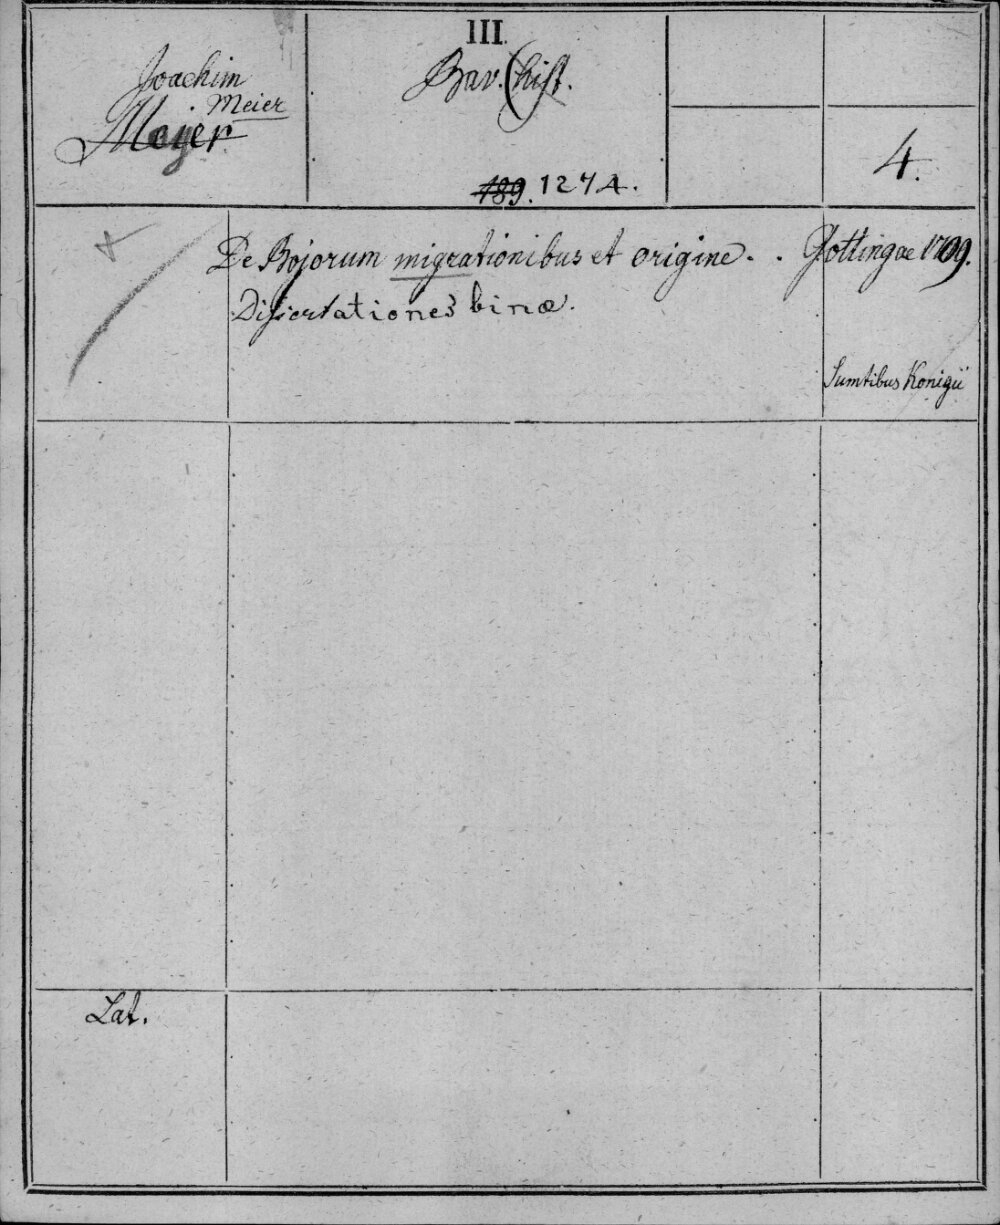 III
Joachim
Meier
Meyer
Bav. (hist.
4.
189. 1274.
De Bojorum migrationibus et origine. . Gottingae 1709.
Dissertationes binæ.
Sumtibus Konigii
Lat.